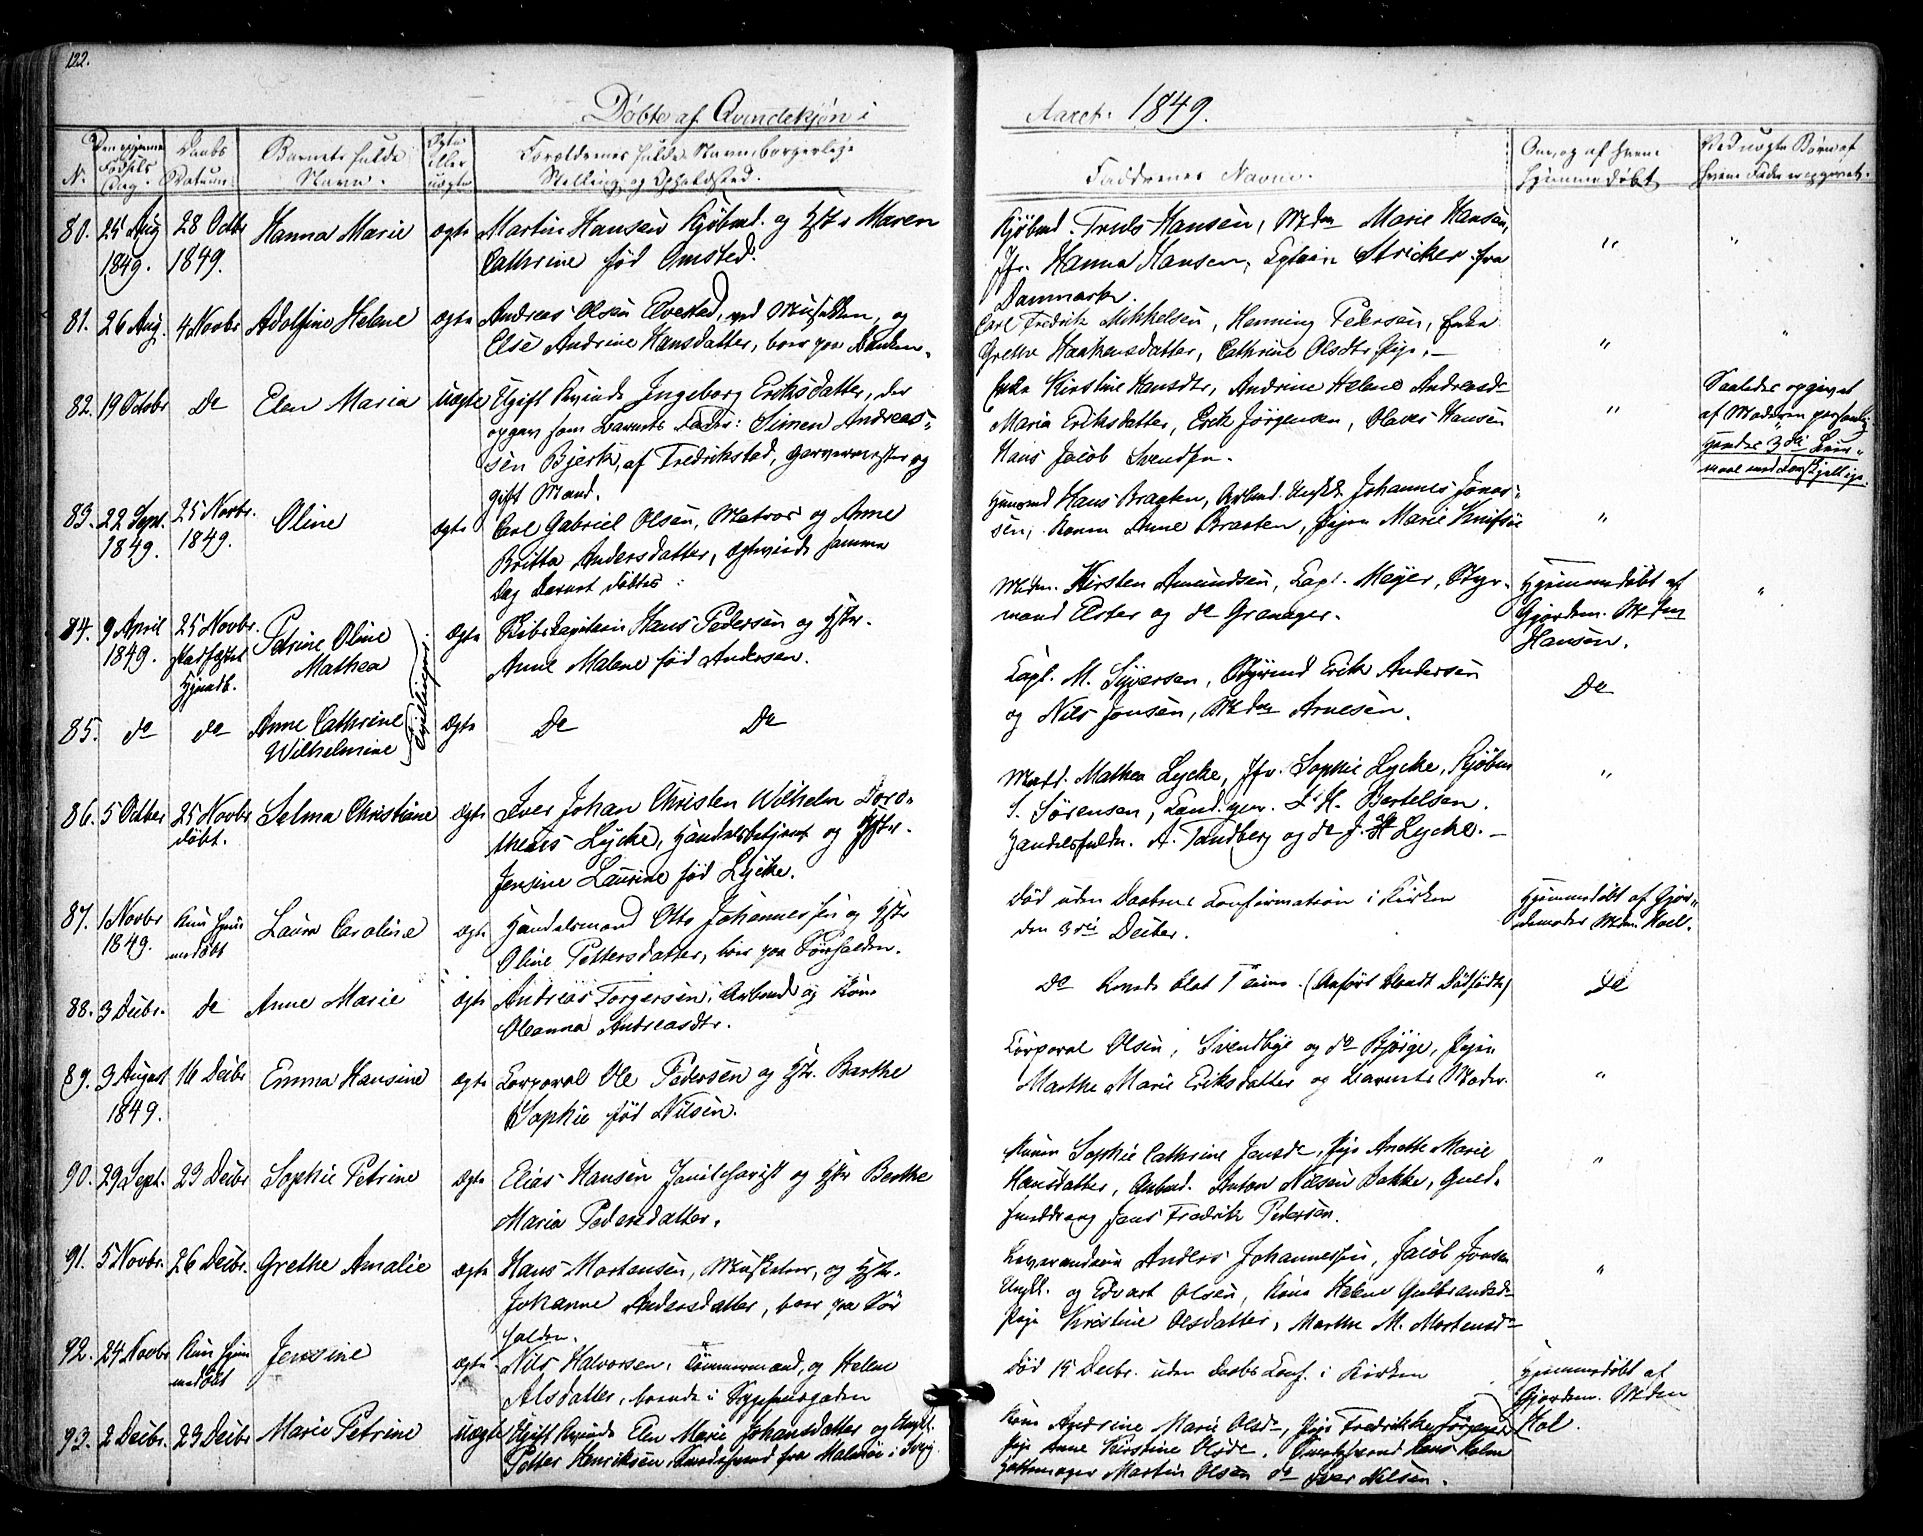 122.
Døbte af Qvindekjøn i
Aaret: 1849.
N.
Fødsels
Dag.
Daabs
Datum.
Barnets fulde
Navn.
Ægte
eller
uægte
Forældrenes fulde Navn, borgerlige
Stilling og Opholdssted.
Faddernes Navne.
Om, og af hvem
hjemmedøbt
Ved uægte Børn af
hvem Fader
80. 25 Aug 1849. 28 Octbr 1849. Hanna Marie ægte Martin Hansen Kjøbmd. og Hstr. Maren
Cathrine fød Omsted.
Kjøbmd. Truls Hansen, Mdm Marie Hansen,
Jfr. Hanna Hansen, Stricker fra
Danmark.
81. 26 Aug. 4 Novbr Adolfine Helene ægte Andreas Olsen Elvestad, ved og
Else Andrine Hansdatter, boer paa
Carl Fredrik Mikkelsen, Henning Pedersen, Enke
Grethe Haakensdatter, Cathrine Olsdtr, Pige.
82. 19 Octobr Do Elen Maria Uægte Ugift Kvinde Ingeborg Eriksdatter, der
opgav som Barnets Fader: Simen Andreas-
sen Bjerk, af Fredrikstad, Garvermester og
gift Mand.
Enke Kirstine Hansdtr, Andrine Helene Andreasdr
Maria Eriksdatter, Erik Jørgensen, Olaves Hansen
Hans Jacob Svendsen.
Saaledes opgivet
af Moderen personlig
hendes 3die Leier-
maal med forskjellige.
83. 22 Sept. 1849. 25 Novbr. 1849. Oline ægte Carl Gabriel Olsen, Matros og Anne
Britta Andersdatter, Ægteviede samme
Dag Barnet døbtes
Hans Braaten, Arbmd. Johannes Jonas-
sen, Konen Anne Braaten, Pigen Marie
84. 9 April 1849. 25 Novbr. stadfæstet Hjemdb. Petrine Oline
Mathea Ægte Skibscapitain Hans Pedersen og Hstr.
Anne Malene fød Andersen.
Mdm. Kirsten Amundsen, Capt. Meyer, Styr-
mand Elster og do Grønager.
Hjemmedøbt af
Gjordem. Mdm
Hansen.
85. do do Anne Cathrine
Wilhelmine Tvillinger Ægte Do Do
Capt. M. Syversen, Styrmd Erik Andersen
og Nils Jonsen, Mdm Arnesen.
Do
86. 5 Octbr 25 Novbr døbt. Selma Christiane ægte Iver Johan Christen Wilhelm Doro-
theus Lycke, Handelsbetjent og Hstr.
Jensine Laurine fød Lycke.
Madd. Mathea Lycke, Jfr. Sophie Lycke, Kjøbm
S. Sørensen, H. Bertelsen.
Handelsfuldm. A. Tandberg og do J. Lycke.
87. 1 Novbr 1849. Kun hjem-
medøbt Laura Caroline ægte Handelsmand Otto Johannessen og Hstr
Oline Pettersdatter, boer paa Sørhalden.
Død uden Daabens Confirmation i Kirken
den 3die Decbr.
Hjemmedøbt af Gjor-
demoder Mdm. Hoel.
88. 3 Decbr. Do Anne Marie ægte Andreas Torgersen, Arbmd og Kone
Oleanna Andreasdtr.
Do levede blot 1 Time. (Anført blandt Dødfødte)
Do
89. 3 August 1849. 16 Decbr Emma Hansine ægte Corporal Ole Pedersen og Hstr. Barthe
Sophie fød Nilsen.
Corporal Olsen, Svendbye og do Bjørge, Pigen
Marthe Marie Eriksdatter og Barnets Moder.
90. 29 Sept. 23 Decbr Sophie Petrine ægte Elias Hansen og Hstr Berthe
Maria Pedersdatter.
Konen Sophie Cathrine Jensdr, Pige Anette Marie
Hansdatter, Arbmd. Anton Nilsen Bakke, Guld-
smeddreng Jens Fredrik Pedersen.
91. 5 Novbr. 26 Decbr. Grethe Amalie ægte Hans Mortensen, Musketeer, og Hstr.
Johanne Andersdatter, boer paa Sør
halden.
Anders Johannessen, Jacob Jonsen
Ungkl. og Edvart Olsen, Kone Helene Gulbrandsdr
Pige Kristine Olsdatter, Marthe M. Mortensdr
92. 24 Novbr Kun hjem
medøbt Jensine ægte Nils Halvorsen, Tømmermand, og Helene
Alsdatter, boende i
Død 15 Decbr. uden Daabs Conf. i Kirken
Hjemmedøbt af
Gjordem. Mdm
Hol.
93. 2 Decbr. 23 Decbr Marie Petrine uægte Ugift Kvinde Elen Marie Johansdatter og Ungkl.
Petter Henriksen, fra Malmøe i Sverig
Kone Andrine Marie Olsdr, Pige Fredrikke Jørgensdr
Pige Anne Kirstine Olsdr, Hans Holm
Hattemager Martin Olsen do Iver Nilsen.